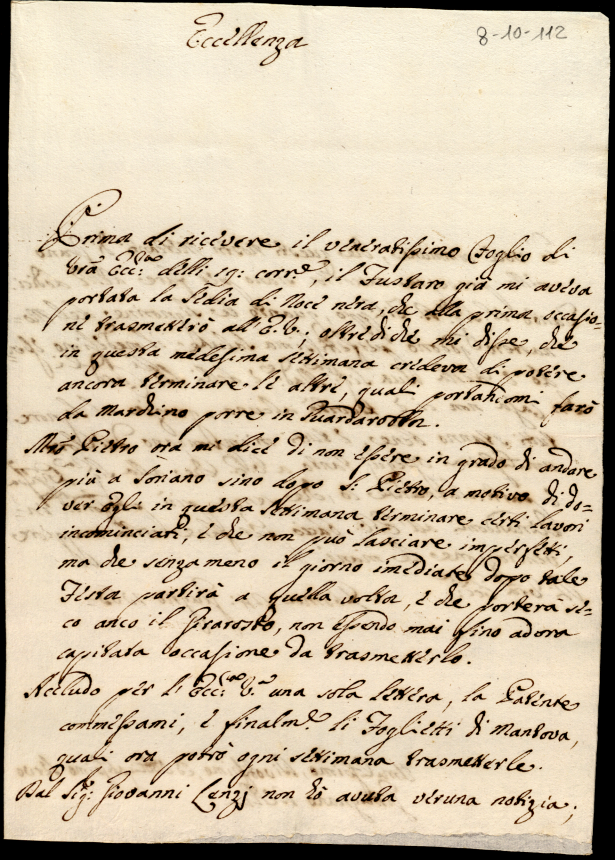 8-10-112
Eccellenza
Prima di ricevere il veneratissimo Foglio di
Vrã Ecc:za delli 19: corr.e, il Fustaro già mi aveva
portata la Sedia di Noce nera, che alla prima occasio-
ne trasmetterò all'E.V.; oltre di che mi disse, che
in questa medesima settimana credeva di potere
ancora terminare le altre, quali portatemi farò
da Marchino porre in Guardarobba.
Mro Pietro ora mi dice di non essere in grado di andare
più a Soriano sino dopo S. Pietro, a motivo di do-
ver egli in questa settimana terminare certi lavori
incominciati, e che non può lasciare imperfetti,
ma che senza meno il giorno imediate dopo tale
Festa partirà a quella volta, e che porterà se-
co anco il Girarosto, non essendo mai fino adora
capitata occasione da trasmetterlo.
Accludo per l'Ecc:za V.a una sola lettera, la Patente
commessami, e finalm.e li Foglietti di Mantova,
quali ora potrò ogni settimana trasmetterle.
Dal Sig: Giovanni Lenzj non hò avuta veruna notizia;